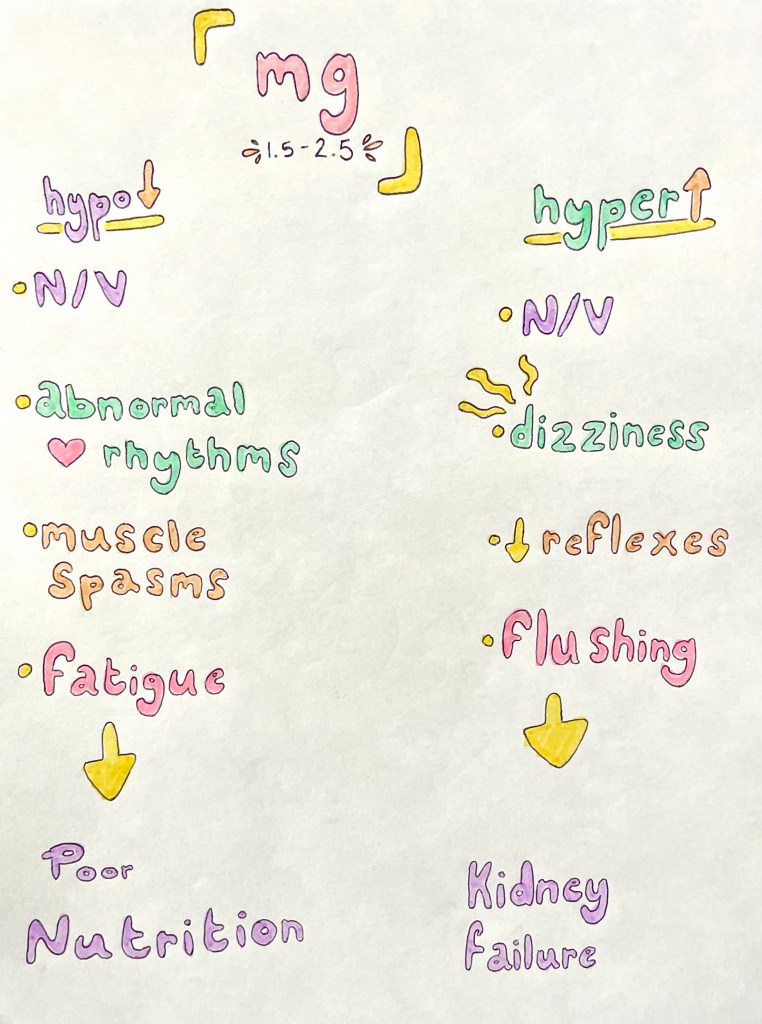 mg
1.5-2.5
hypo↓
• N/V
• abnormal
♥ rhythms
• muscle
spasms
• fatigue
↓
Poor
Nutrition
hyper↑
• N/V
• dizziness
• ↓ reflexes
• flushing
↓
Kidney
failure